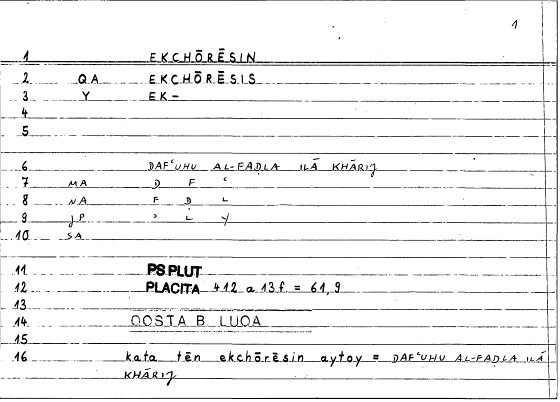 1
1 EKCHŌRĒSIN
2 QA EKCHŌRĒSIS
3 Y EK-
4
5
6 DAFʿUHU AL-FAḌLA ILĀ KHĀRIJ
7 MA D F ʿ
8 NA F Ḍ L
9 JP ʾ L Y
10 SA
11 PS PLUT
12 PLACITA 412 a 13 f. = 61,9
13
14 QOSTA B. LUQA
15
16 kata tēn ekchōrēsin aytoy = DAFʿUHU AL-FAḌLA ILĀ
KHĀRIJ